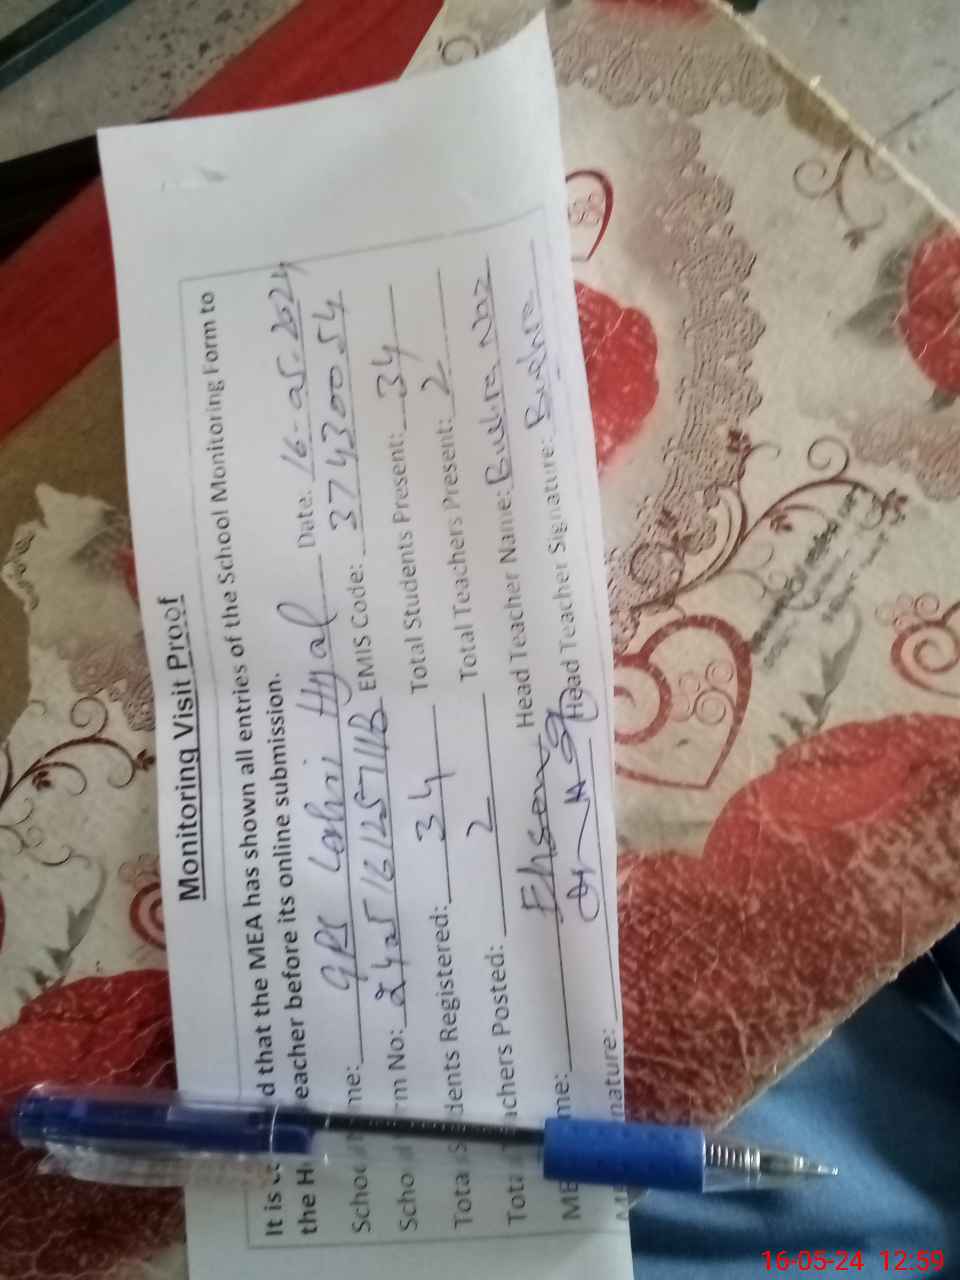 Monitoring Visit Proof
It is d that the MEA has shown all entries of the School Monitoring Form to
the H eacher before its online submission.
School me: GPS Lohri Hyal Date: 16-05-2024
School rm No: 2405161257118 EMIS Code: 37430054
Total S dents Registered: 34 Total Students Present: 34
Total T achers Posted: 2 Total Teachers Present: 2
ME me: Ehsan Head Teacher Name: Bushra Naz
nature: Head Teacher Signature: Bushra
16-05-24 12:59